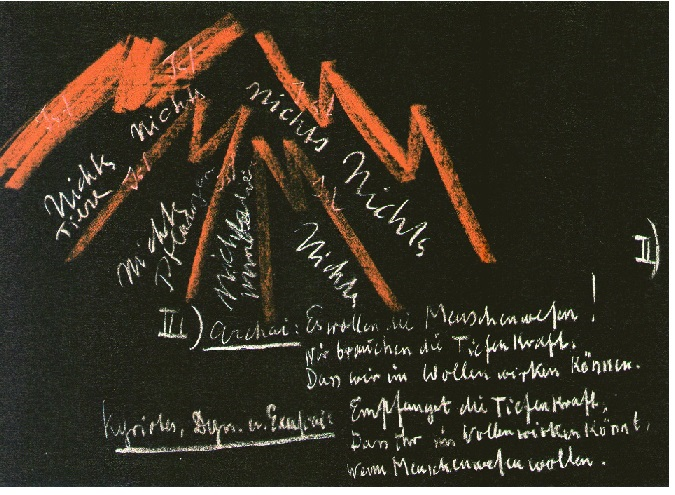 Ist
Ist
nichts
Nichts
Nichts
Tiere
Ist
Nichts
Nichts
Pflanzen
Nichts
Nichts
II)
III) Archai: Es wollen die Menschenwesen!
Wir brauchen die Tiefenkraft,
Dass wir im Wollen wirken können.
Kyriotet, Dyn. u. Exusiai: Empfanget die Tiefenkraft,
Dass ihr im Wollen wirken könnt,
wenn Menschenwesen wollen.